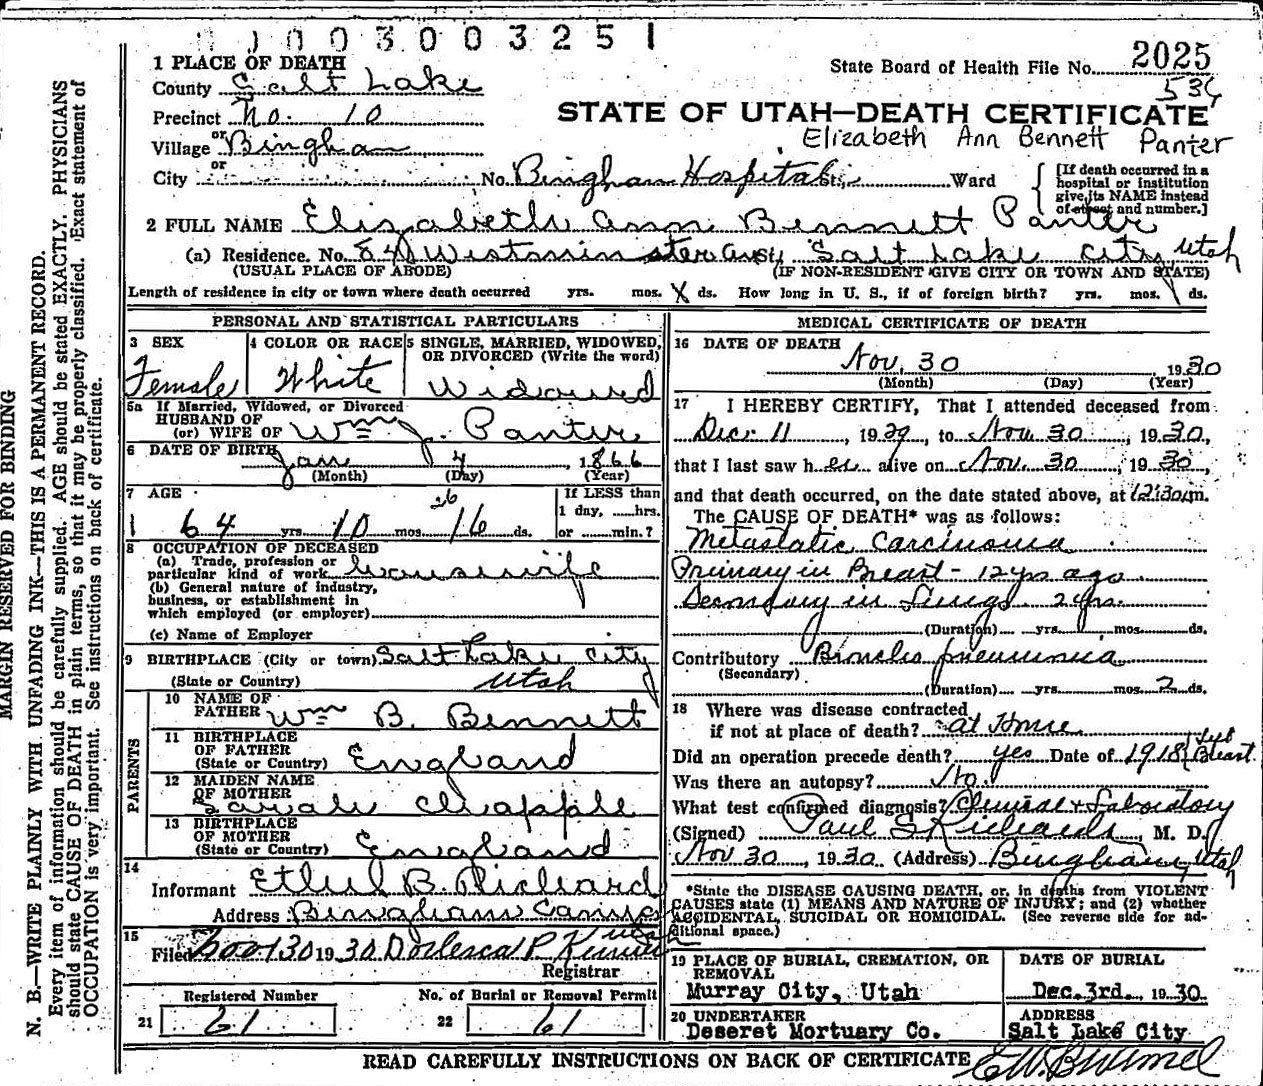 0003003251
1 PLACE OF DEATH
State Board of Health File No. 2025
County Salt Lake
536
Precinct No. 10
STATE OF UTAH—DEATH CERTIFICATE
Village Bingham
Elizabeth Ann Bennett Panter
or
City No. Bingham Hospital St., Ward
[If death occurred in a hospital or institution give its NAME instead of street and number.]
2 FULL NAME Elizabeth Ann Bennett Panter
(a) Residence. No. 840 Westminster Ave St., Salt Lake City, Utah
(USUAL PLACE OF ABODE) (IF NON-RESIDENT GIVE CITY OR TOWN AND STATE)
Length of residence in city or town where death occurred yrs. mos. X ds. How long in U. S., if of foreign birth? yrs. mos. ds.
PERSONAL AND STATISTICAL PARTICULARS
3 SEX 4 COLOR OR RACE 5 SINGLE, MARRIED, WIDOWED,
OR DIVORCED (Write the word)
Female White Widowed
5a If Married, Widowed, or Divorced
HUSBAND OF
(or) WIFE OF Wm J. Panter
6 DATE OF BIRTH Jan 4, 1866
(Month) (Day) (Year)
7 AGE If LESS than
26 1 day, ......hrs.
64 yrs. 10 mos. 16 ds. or ......min.?
8 OCCUPATION OF DECEASED
(a) Trade, profession or
particular kind of work housewife
(b) General nature of industry,
business, or establishment in
which employed (or employer)
(c) Name of Employer
9 BIRTHPLACE (City or town) Salt Lake City
(State or Country) Utah
PARENTS
10 NAME OF
FATHER Wm B. Bennett
11 BIRTHPLACE
OF FATHER
(State or Country) England
12 MAIDEN NAME
OF MOTHER
Sarah Chapple
13 BIRTHPLACE
OF MOTHER
(State or Country) England
14
Informant Ethel B. Richard
Address Bingham Canyon
Utah
15
Filed Nov 30 1930
Registrar
Registered Number No. of Burial or Removal Permit
21 61 22 61
MEDICAL CERTIFICATE OF DEATH
16 DATE OF DEATH
Nov. 30, 1930
(Month) (Day) (Year)
17 I HEREBY CERTIFY, That I attended deceased from
Dec. 11, 1929, to Nov. 30, 1930,
that I last saw her alive on Nov. 30, 1930,
and that death occurred, on the date stated above, at 12:30 m.
The CAUSE OF DEATH* was as follows:
Metastatic Carcinoma
Primary in Breast - 12 yrs ago
Secondary in Lungs. 2 yrs.
(Duration) yrs. mos. ds.
Contributory Broncho pneumonia
(Secondary)
(Duration) yrs. mos. 2 ds.
18 Where was disease contracted
if not at place of death? at Home
Did an operation precede death? yes Date of 1918 Breast.
Was there an autopsy? No.
What test confirmed diagnosis? Clinical & Laboratory
(Signed) Paul S Richards, M. D.
Nov 30, 1930 (Address) Bingham, Utah
*State the DISEASE CAUSING DEATH, or, in deaths from VIOLENT
CAUSES state (1) MEANS AND NATURE OF INJURY; and (2) whether
ACCIDENTAL, SUICIDAL OR HOMICIDAL. (See reverse side for ad-
ditional space.)
19 PLACE OF BURIAL, CREMATION, OR REMOVAL DATE OF BURIAL
Murray City, Utah Dec. 3rd., 1930
20 UNDERTAKER ADDRESS
Deseret Mortuary Co. Salt Lake City
READ CAREFULLY INSTRUCTIONS ON BACK OF CERTIFICATE
MARGIN RESERVED FOR BINDING
N. B.—WRITE PLAINLY WITH UNFADING INK—THIS IS A PERMANENT RECORD.
Every item of information should be carefully supplied. AGE should be stated EXACTLY. PHYSICIANS
should state CAUSE OF DEATH in plain terms, so that it may be properly classified. Exact statement of
OCCUPATION is very important. See instructions on back of certificate.